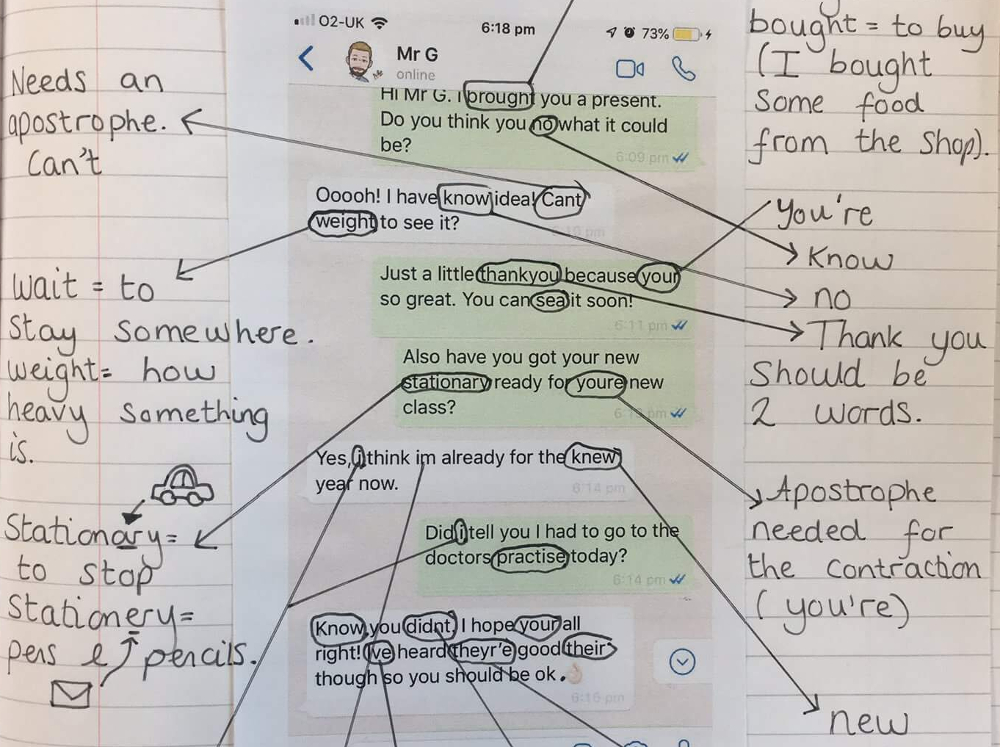 Needs an
apostrophe.
Can't
wait = to
stay somewhere.
weight = how
heavy something
is.
Stationary =
to stop
Stationery =
pens & pencils.
O2-UK
6:18 pm
73%
Mr G
online
Hi Mr G. I brought you a present.
Do you think you no what it could
be?
6:09 pm
Ooooh! I have know idea! Cant
weight to see it?
Just a little thankyou because your
so great. You can sea it soon!
6:11 pm
Also have you got your new
stationary ready for youre new
class?
Yes, i think im already for the knew
year now.
6:14 pm
Did i tell you I had to go to the
doctors practise today?
6:14 pm
Know you didnt, I hope your all
right! Ive heard theyr'e good their
though so you should be ok.
6:16 pm
bought = to buy
(I bought
some food
from the shop).
you're
Know
no
Thank you
should be
2 words.
Apostrophe
needed for
the contraction
(you're)
new